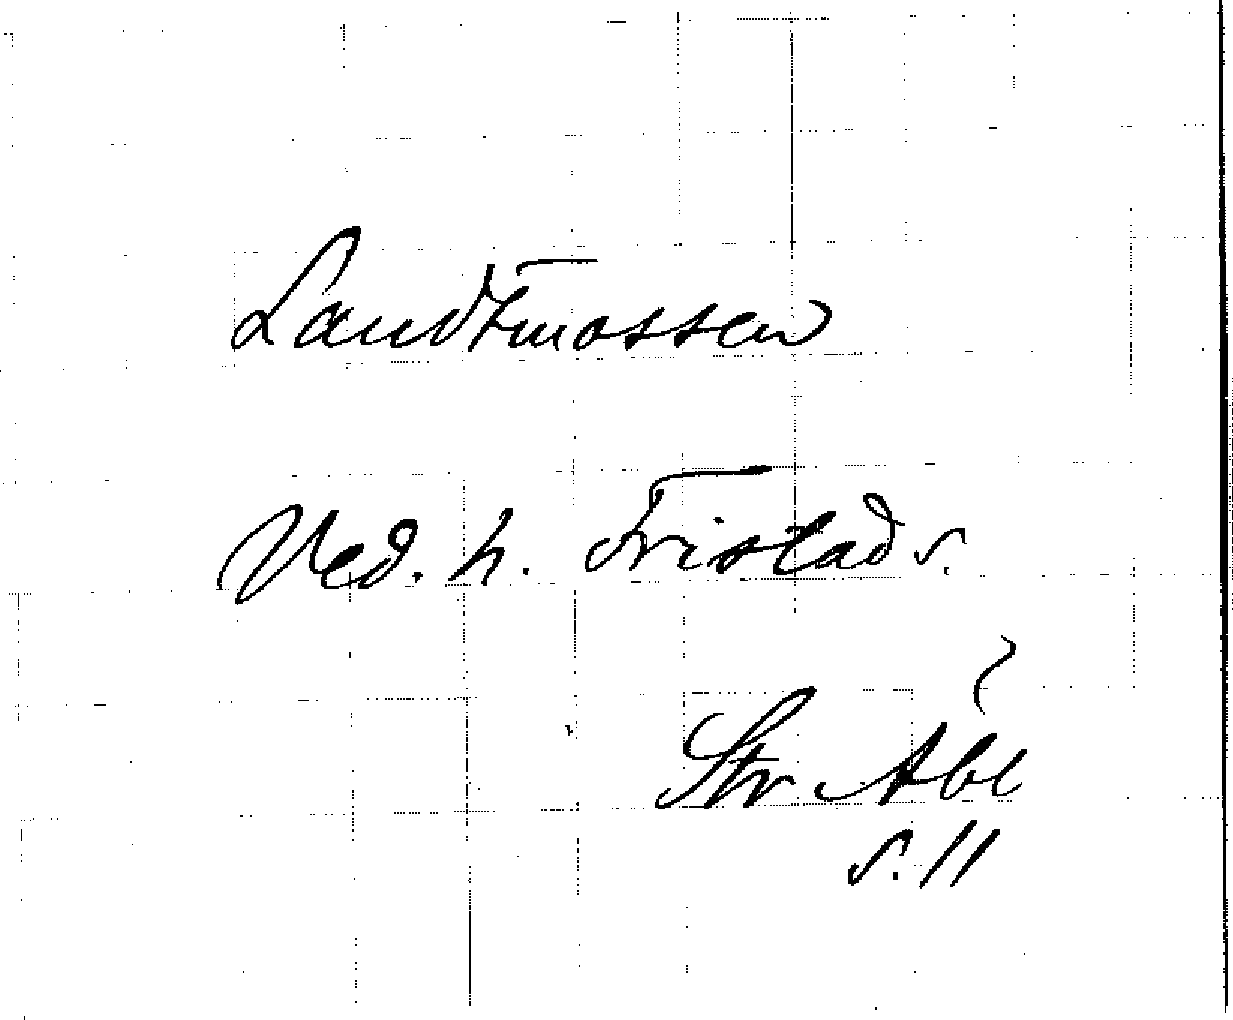 Landtmossen
Ved. h. Fristad s.
Str Åbl
s. 11